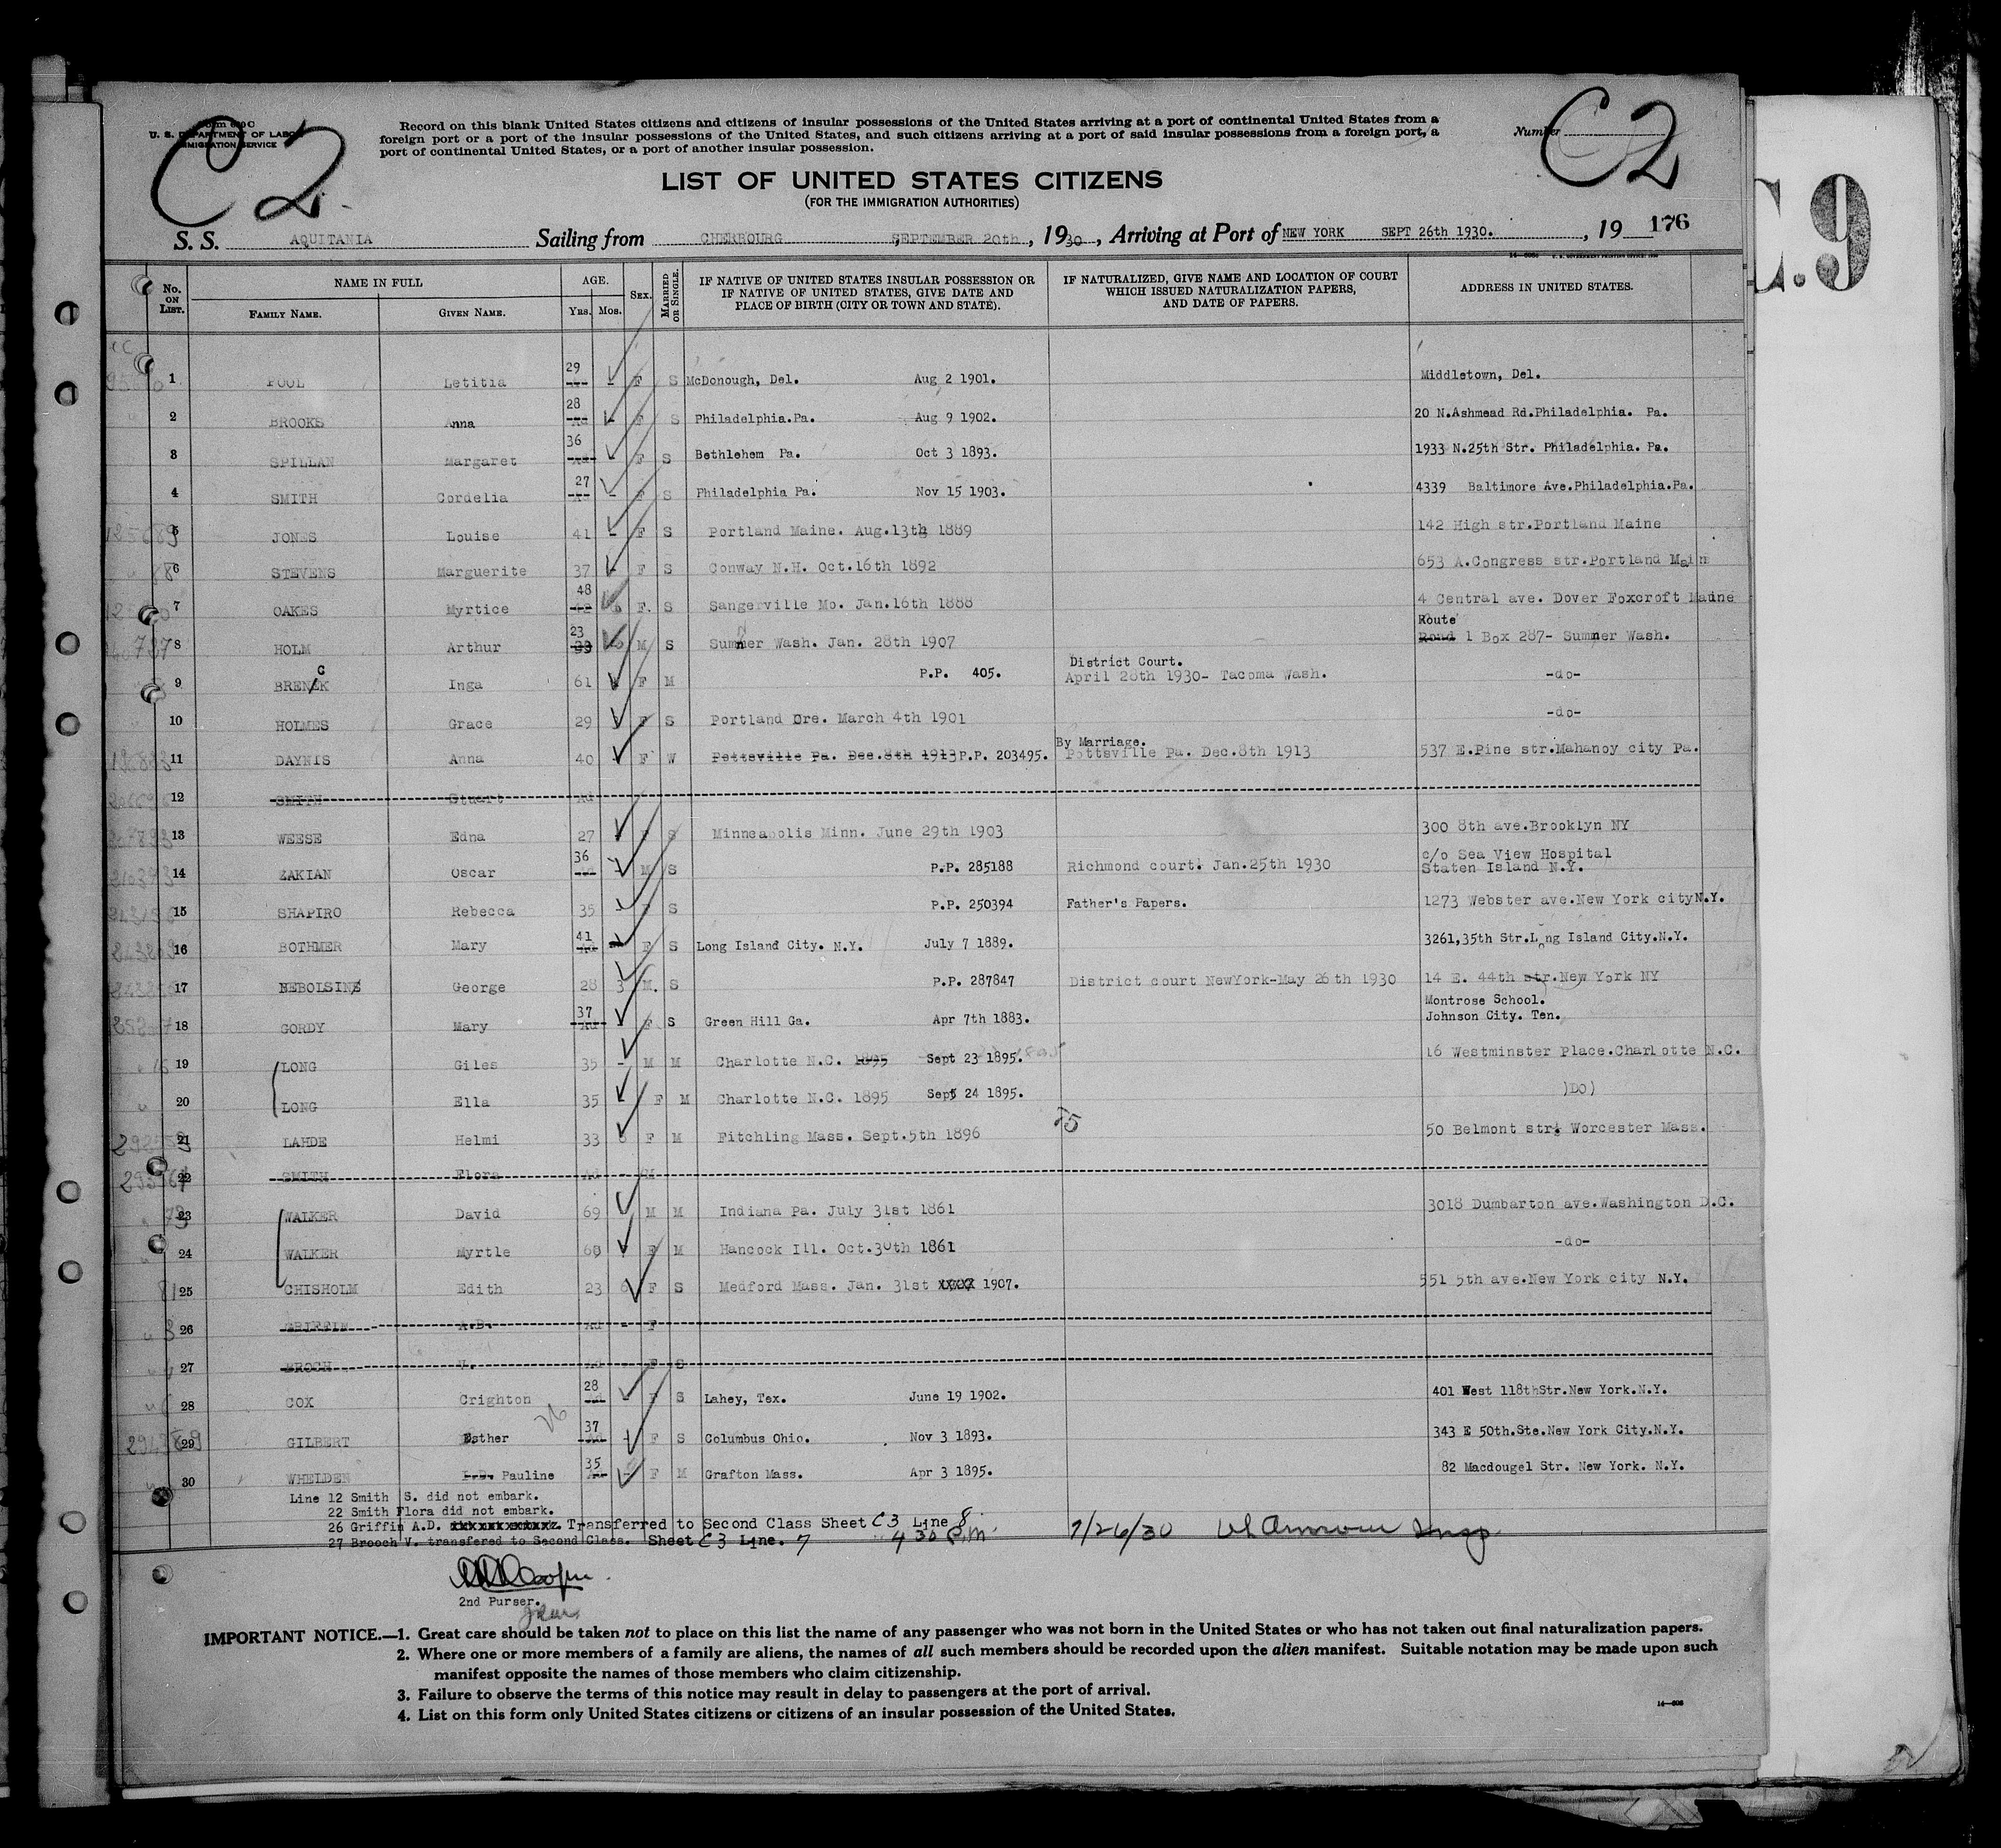 C2
Form 630 C
U. S. DEPARTMENT OF LABOR
IMMIGRATION SERVICE
Record on this blank United States citizens and citizens of insular possessions of the United States arriving at a port of continental United States from a
foreign port or a port of the insular possessions of the United States, and such citizens arriving at a port of said insular possessions from a foreign port, a
port of continental United States, or a port of another insular possession.
Number
C2
LIST OF UNITED STATES CITIZENS
(FOR THE IMMIGRATION AUTHORITIES)
S. S. AQUITANIA Sailing from CHERBOURG SEPTEMBER 20th, 1930, Arriving at Port of NEW YORK SEPT 26th 1930. , 19 176
C.9
No. ON LIST. NAME IN FULL FAMILY NAME. GIVEN NAME. AGE. Yrs. Mos. SEX. MARRIED OR SINGLE. IF NATIVE OF UNITED STATES INSULAR POSSESSION OR IF NATIVE OF UNITED STATES, GIVE DATE AND PLACE OF BIRTH (CITY OR TOWN AND STATE). IF NATURALIZED, GIVE NAME AND LOCATION OF COURT WHICH ISSUED NATURALIZATION PAPERS, AND DATE OF PAPERS. ADDRESS IN UNITED STATES.
1 POOL Letitia 29 - F S McDonough, Del. Aug 2 1901. Middletown, Del.
2 BROOKS Anna 28 - F S Philadelphia.Pa. Aug 9 1902. 20 N.Ashmead Rd.Philadelphia. Pa.
3 SPILLAN Margaret 36 - F S Bethlehem Pa. Oct 3 1893. 1933 N.25th Str. Philadelphia. Pa.
4 SMITH Cordelia 27 - F S Philadelphia Pa. Nov 15 1903. 4339 Baltimore Ave.Philadelphia.Pa.
5 JONES Louise 41 - F S Portland Maine. Aug.13th 1889 142 High str.Portland Maine
6 STEVENS Marguerite 37 - F S Conway N.H. Oct.16th 1892 653 A.Congress str.Portland Main
7 OAKES Myrtice 48 F. S Sangerville Mo. Jan.16th 1888 4 Central ave. Dover Foxcroft Maine
8 HOLM Arthur 23 M S Sumner Wash. Jan. 28th 1907 Route Road 1 Box 287- Sumner Wash.
9 BRENCK Inga 61 F M P.P. 405. District Court. April 28th 1930- Tacoma Wash. -do-
10 HOLMES Grace 29 F S Portland Ore. March 4th 1901 -do-
11 DAYNIS Anna 40 - F W Pottsville Pa. Dec.8th 1913 P.P. 203495. By Marriage. Pottsville Pa. Dec.8th 1913 537 E.Pine str.Mahanoy city Pa.
12 SMITH Stuart Ad
13 WEESE Edna 27 F S Minneapolis Minn. June 29th 1903 300 8th ave.Brooklyn NY
14 ZAKIAN Oscar 36 - M S P.P. 285188 Richmond court. Jan.25th 1930 c/o Sea View Hospital Staten Island N.Y.
15 SHAPIRO Rebecca 35 - F S P.P. 250394 Father's Papers. 1273 Webster ave.New York cityN.Y.
16 BOTHMER Mary 41 - F S Long Island City. N.Y. July 7 1889. 3261,35th Str.Long Island City.N.Y.
17 NEBOLSINE George 28 3 M. S P.P. 287847 District court NewYork-May 26th 1930 14 E. 44th str.New York NY
18 GORDY Mary 37 - F S Green Hill Ga. Apr 7th 1883. Montrose School. Johnson City. Ten.
19 LONG Giles 35 - M M Charlotte N.C. 1895 Sept 23 1895. 16 Westminster Place.Charlotte N.C.
20 LONG Ella 35 - F M Charlotte N.C. 1895 Sept 24 1895. )DO)
21 LAHDE Helmi 33 F M Fitchling Mass. Sept.5th 1896 50 Belmont str. Worcester Mass.
22 SMITH Flora Ad -
23 WALKER David 69 M M Indiana Pa. July 31st 1861 3018 Dumbarton ave.Washington D.C.
24 WALKER Myrtle 68 F M Hancock Ill. Oct.30th 1861 -do-
25 CHISHOLM Edith 23 F S Medford Mass. Jan. 31st XXXX 1907. 551 5th ave.New York city N.Y.
26 GRIFFIN A.D. Ad - F
27 BROCH V. Ad F S
28 COX Crighton 28 - F S Lahey, Tex. June 19 1902. 401 West 118thStr.New York.N.Y.
29 GILBERT Esther 37 F S Columbus Ohio. Nov 3 1893. 343 E 50th.Ste.New York City.N.Y.
30 WHELDEN Pauline 35 - F M Grafton Mass. Apr 3 1895. 82 Macdougel Str. New York. N.Y.
Line 12 Smith S. did not embark.
22 Smith Flora did not embark.
26 Griffin A.D. Transferred to Second Class Sheet C3 Line 8.
27 Brooch V. transfered to Second Class. Sheet C3 Line. 7 4 30 P.M. 9/26/30
2nd Purser.
IMPORTANT NOTICE.—1. Great care should be taken not to place on this list the name of any passenger who was not born in the United States or who has not taken out final naturalization papers.
2. Where one or more members of a family are aliens, the names of all such members should be recorded upon the alien manifest. Suitable notation may be made upon such
manifest opposite the names of those members who claim citizenship.
3. Failure to observe the terms of this notice may result in delay to passengers at the port of arrival.
4. List on this form only United States citizens or citizens of an insular possession of the United States.